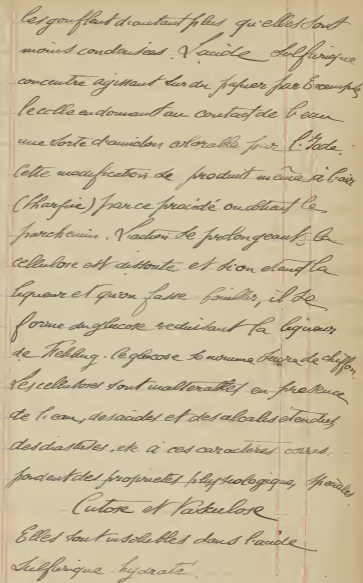 les gonflent d'autant plus qu'elles sont
moins condensées. L'acide sulfurique
concentré agissant sur du papier par Exemple,
le colle en donnant au contact de l'eau
une sorte d'amidon colorable par l'Iode.
Cette modification se produit même à l'air
par ce procédé on obtient le
parchemin. L'action se prolongeant, la
cellulose est dissoute et si on etend la
liqueur et qu'on fasse bouillir, il se
forme du glucose reduisant la liqueur
de Fehling. Ce glucose se nomme sucre de chiffon
Les celluloses sont inalterables en presence
de l'eau, des acides et des alcalis étendus,
des diastases, etc à ces caractères corres-
pondent des proprietes physiologiques, speciales
Cutose et Vasculose
Elles sont insolubles dans l'acide
sulfurique hydraté